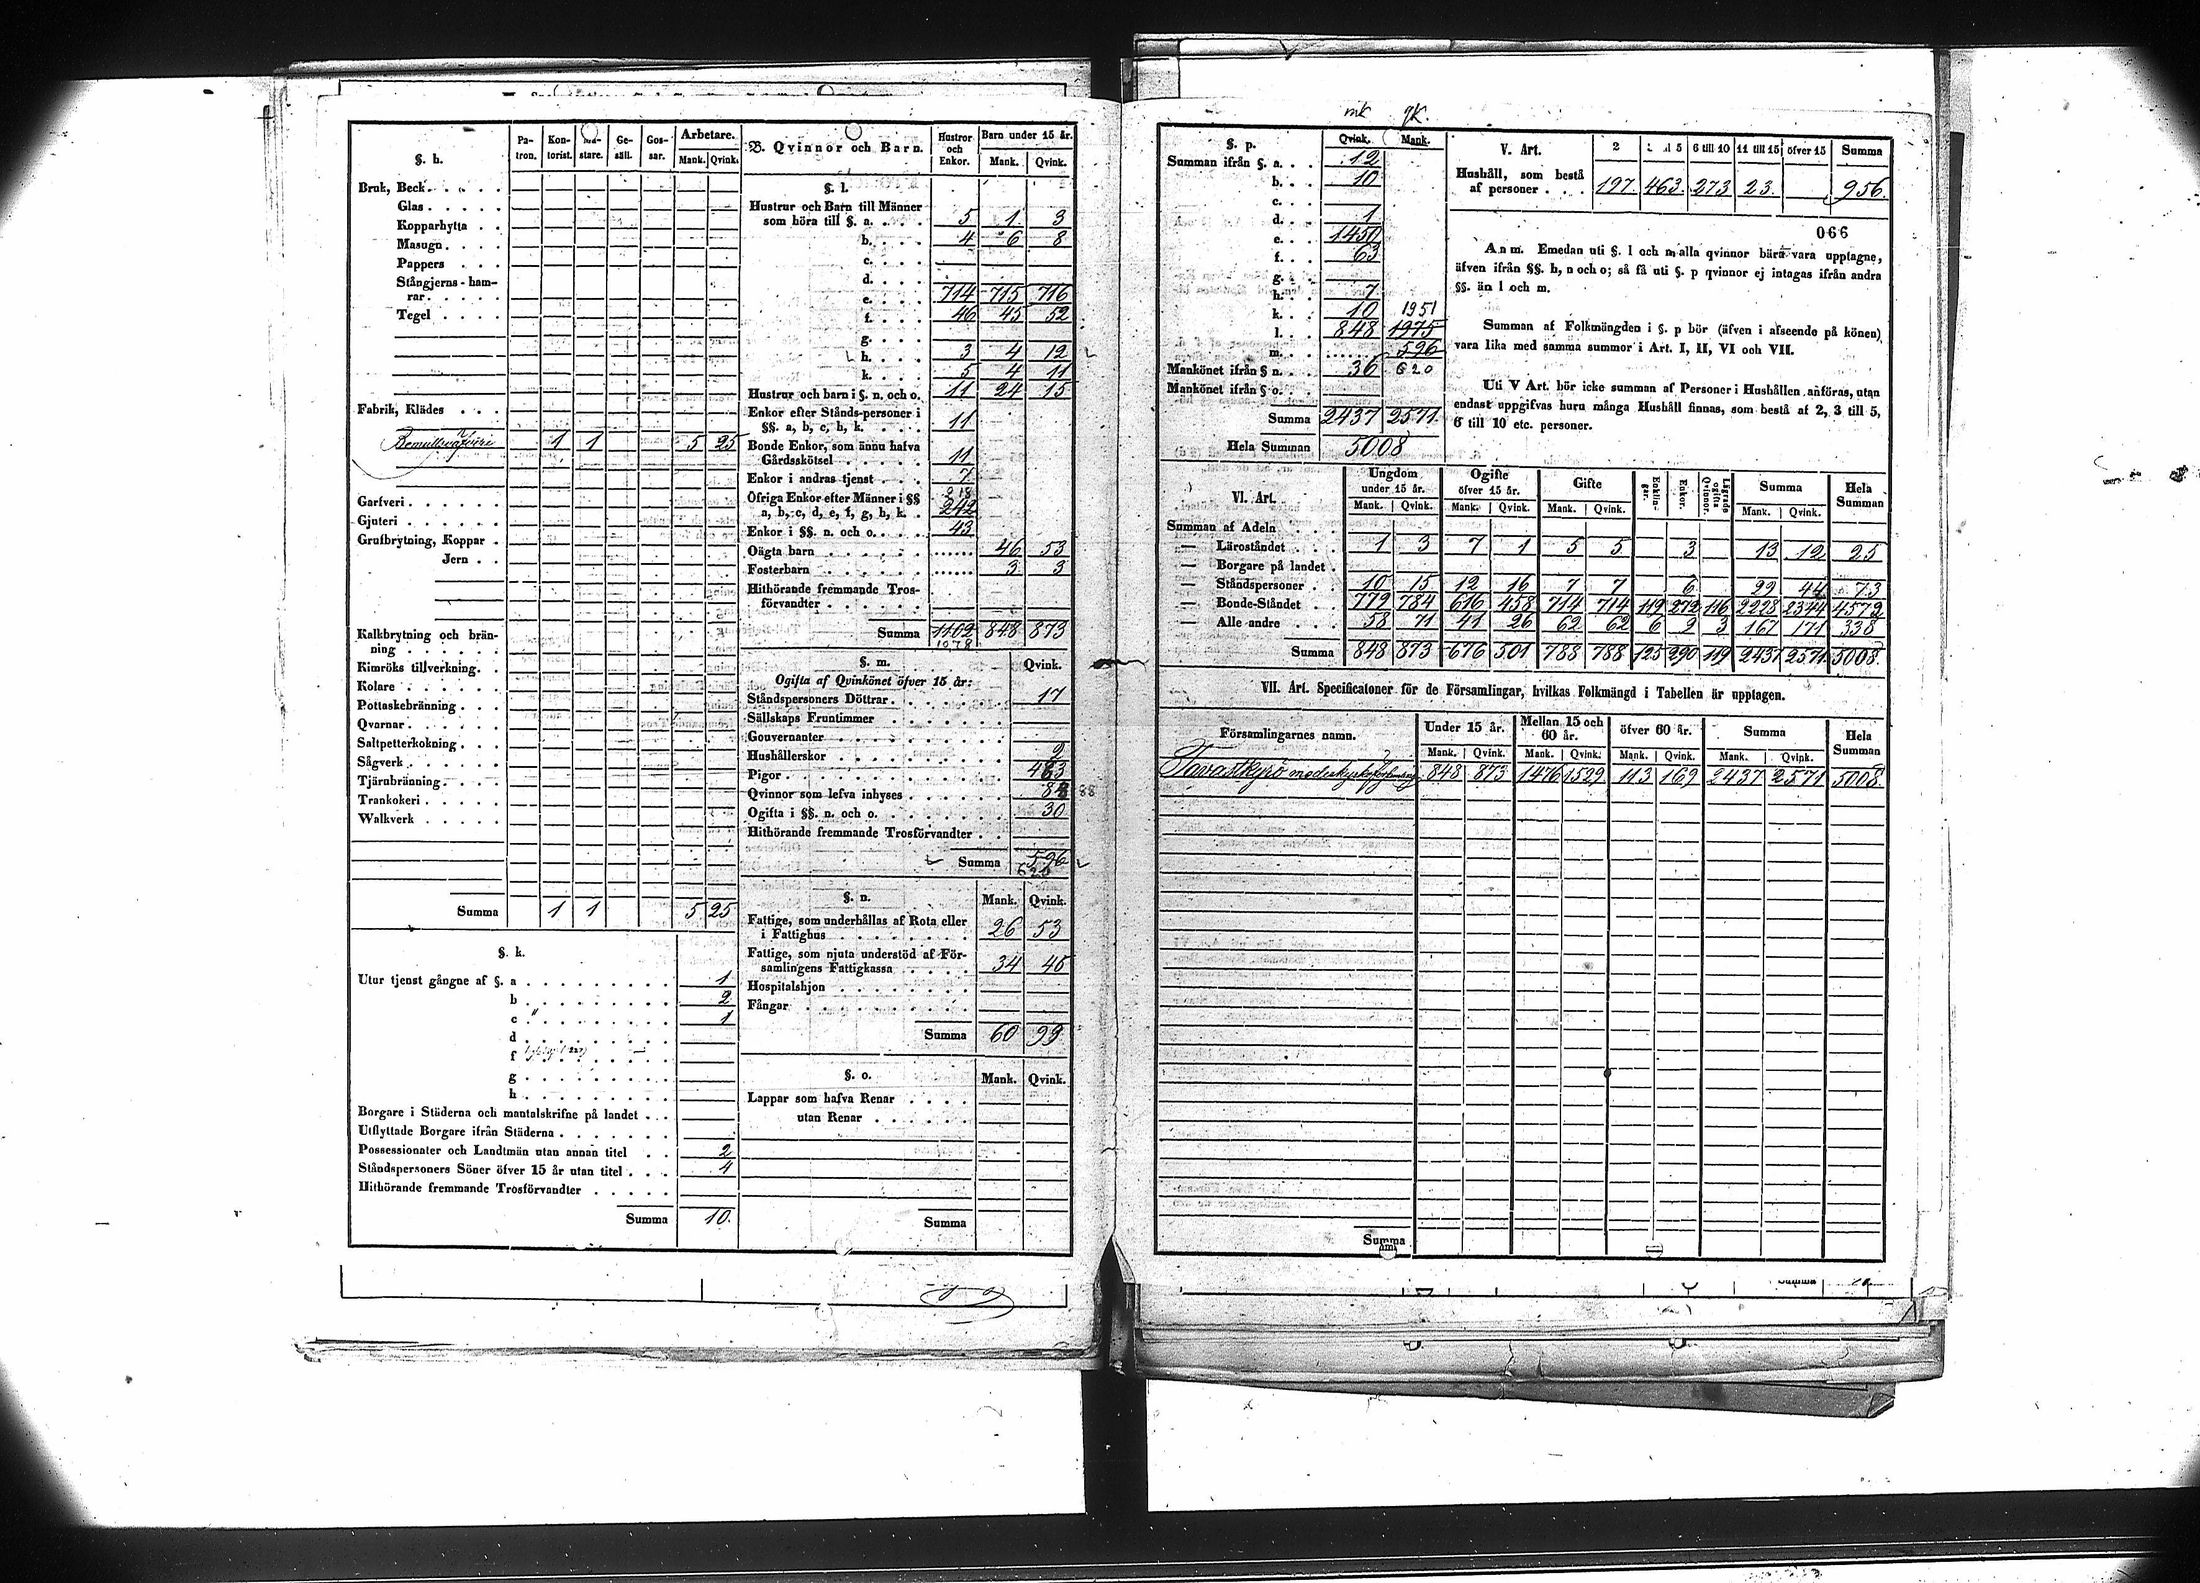 §. h. Pa-tron. Kon-torist. Mä-stare. Ge-säll. Gos-sar. Arbetare. Mank. Qvink.
Bruk, Beck
Glas
Kopparhytta
Masugn
Pappers
Stångjerns-ham-
rar
Tegel
Fabrik, Klädes
1 1 5 25
Garfveri
Gjuteri
Grufbrytning, Koppar
Jern
Kalkbrytning och brän-
ning
Kimröks tillverkning
Kolare
Pottaskebränning
Qvarnar
Saltpetterkokning
Sågverk
Tjärnbränning
Trankokeri
Walkverk
Summa 1 1 5 25
§. k.
Utur tjenst gångne af §. a 1
b 2
c 1
d
f
g
h
Borgare i Städerna och mantalskrifne på landet
Utflyttade Borgare ifrån Städerna
Possessionater och Landtmän utan annan titel 2
Ståndspersoners Söner öfver 15 år utan titel 4
Hithörande fremmande Trosförvandter
Summa 10.
B. Qvinnor och Barn. Hustror och Enkor. Barn under 15 år. Mank. Qvink.
§. l.
Hustrur och Barn till Männer
som höra till §. a. 5 1 3
b. 4 6 8
c.
d.
e. 714 715 716
f. 46 45 52
g.
h. 3 4 12
k. 5 4 11
Hustrur och barn i §. n. och o. 11 24 15
Enkor efter Stånds-personer i
§§. a, b, c, h, k. 11
Bonde Enkor, som ännu hafva
Gårdsskötsel 11
Enkor i andras tjenst 7
Öfriga Enkor efter Männer i §§ 218
a, b, c, d, e, f, g, h, k. 242
Enkor i §§. n. och o. 43
Oägta barn 46 53
Fosterbarn 3 3
Hithörande fremmande Tros-
förvandter
Summa 1102 848 873
1078
§. m. Qvink.
Ogifta af Qvinkönet öfver 15 år:
Ståndspersoners Döttrar 17
Sällskaps Fruntimmer
Gouvernanter
Hushållerskor 2
Pigor 463
Qvinnor som lefva inhyses 88
Ogifta i §§. n. och o. 30
Hithörande fremmande Trosförvandter
Summa 596
620
§. n. Mank. Qvink.
Fattige, som underhållas af Rota eller
i Fattighus 26 53
Fattige, som njuta understöd af För-
samlingens Fattigkassa 34 46
Hospitalshjon
Fångar
Summa 60 99
§. o. Mank. Qvink.
Lappar som hafva Renar
utan Renar
Summa
mk qk.
§. p. Qvink. Mank.
Summan ifrån §. a. 12
b. 10
c.
d. 1
e. 1450
f. 63
g.
h. 7
k. 10 1951
l. 848 1975
m. 596
Mankönet ifrån § n. 36 620
Mankönet ifrån § o.
Summa 2437 2571.
Hela Summan 5008
V. Art. 2 5 6 till 10 11 till 15 öfver 15 Summa
Hushåll, som bestå
af personer 197. 463. 273 23. 956.
066
Anm. Emedan uti §. l och m alla qvinnor böra vara upptagne,
äfven ifrån §§. h, n och o; så få uti §. p qvinnor ej intagas ifrån andra
§§. än l och m.
Summan af Folkmängden i §. p bör (äfven i afseende på könen)
vara lika med samma summor i Art. I, II, VI och VII.
Uti V Art. bör icke summan af Personer i Hushållen anföras, utan
endast uppgifvas huru många Hushåll finnas, som bestå af 2, 3 till 5,
6 till 10 etc. personer.
VI. Art. Ungdom under 15 år. Ogifte öfver 15 år. Gifte Enklin-gar. Enkor. Lägrade ogifta Qvinnor. Summa Hela Summan
Mank. Qvink. Mank. Qvink. Mank. Qvink. Mank. Qvink.
Summan af Adeln
— Läroståndet 1 3 7 1 5 5 3 13 12 25
— Borgare på landet
— Ståndspersoner 10 15 12 16 7 7 6 29 44 73
— Bonde-Ståndet 779 784 616 458 714 714 119 272 116 2228 2344 4572
— Alle andre 58 71 41 26 62 62 6 9 3 167 171 338
Summa 848 873 676 501 788 788 125 290 119 2437 2571 5008.
VII. Art. Specificatoner för de Församlingar, hvilkas Folkmängd i Tabellen är upptagen.
Församlingarnes namn. Under 15 år. Mellan 15 och 60 år. öfver 60 år. Summa Hela Summan
Mank. Qvink. Mank. Qvink. Mank. Qvink. Mank. Qvink.
Tavastkyrö moderkyrkoförsamling 848 873 1476 1529 113 169 2437 2571 5008.
Summa
Summa